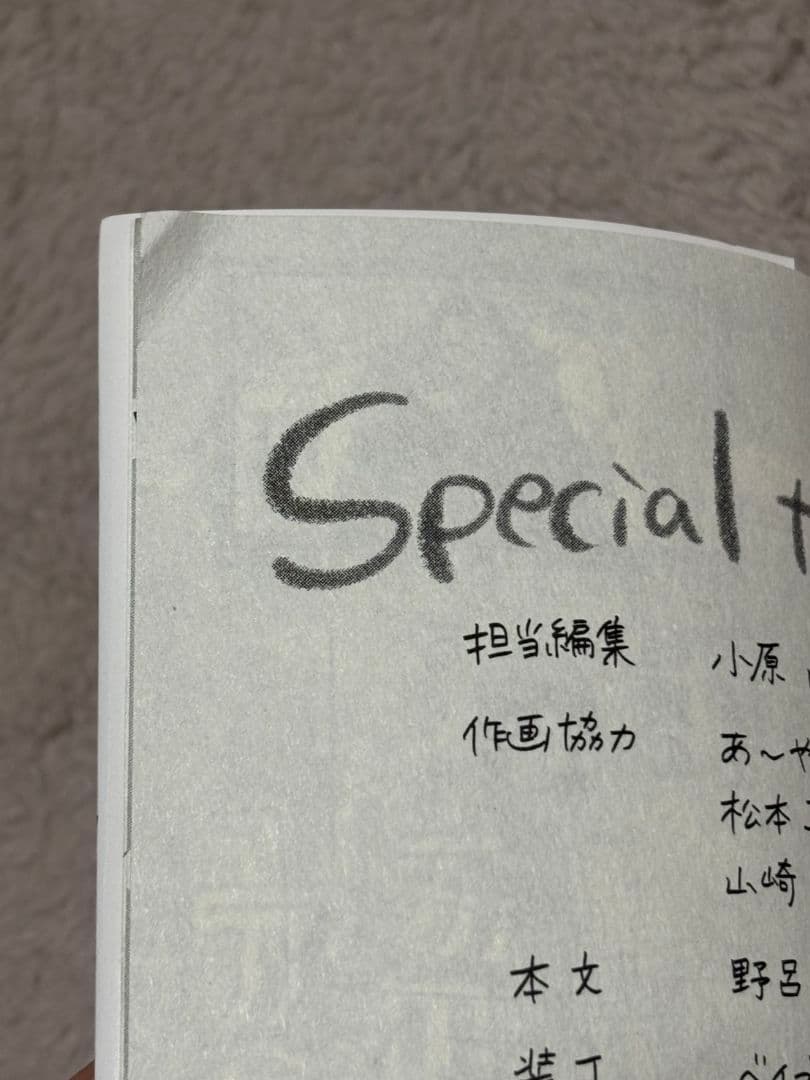 Special t
担当編集 小原
作画協力 あ〜や
松本
山崎
本文 野呂
装丁 ベイ